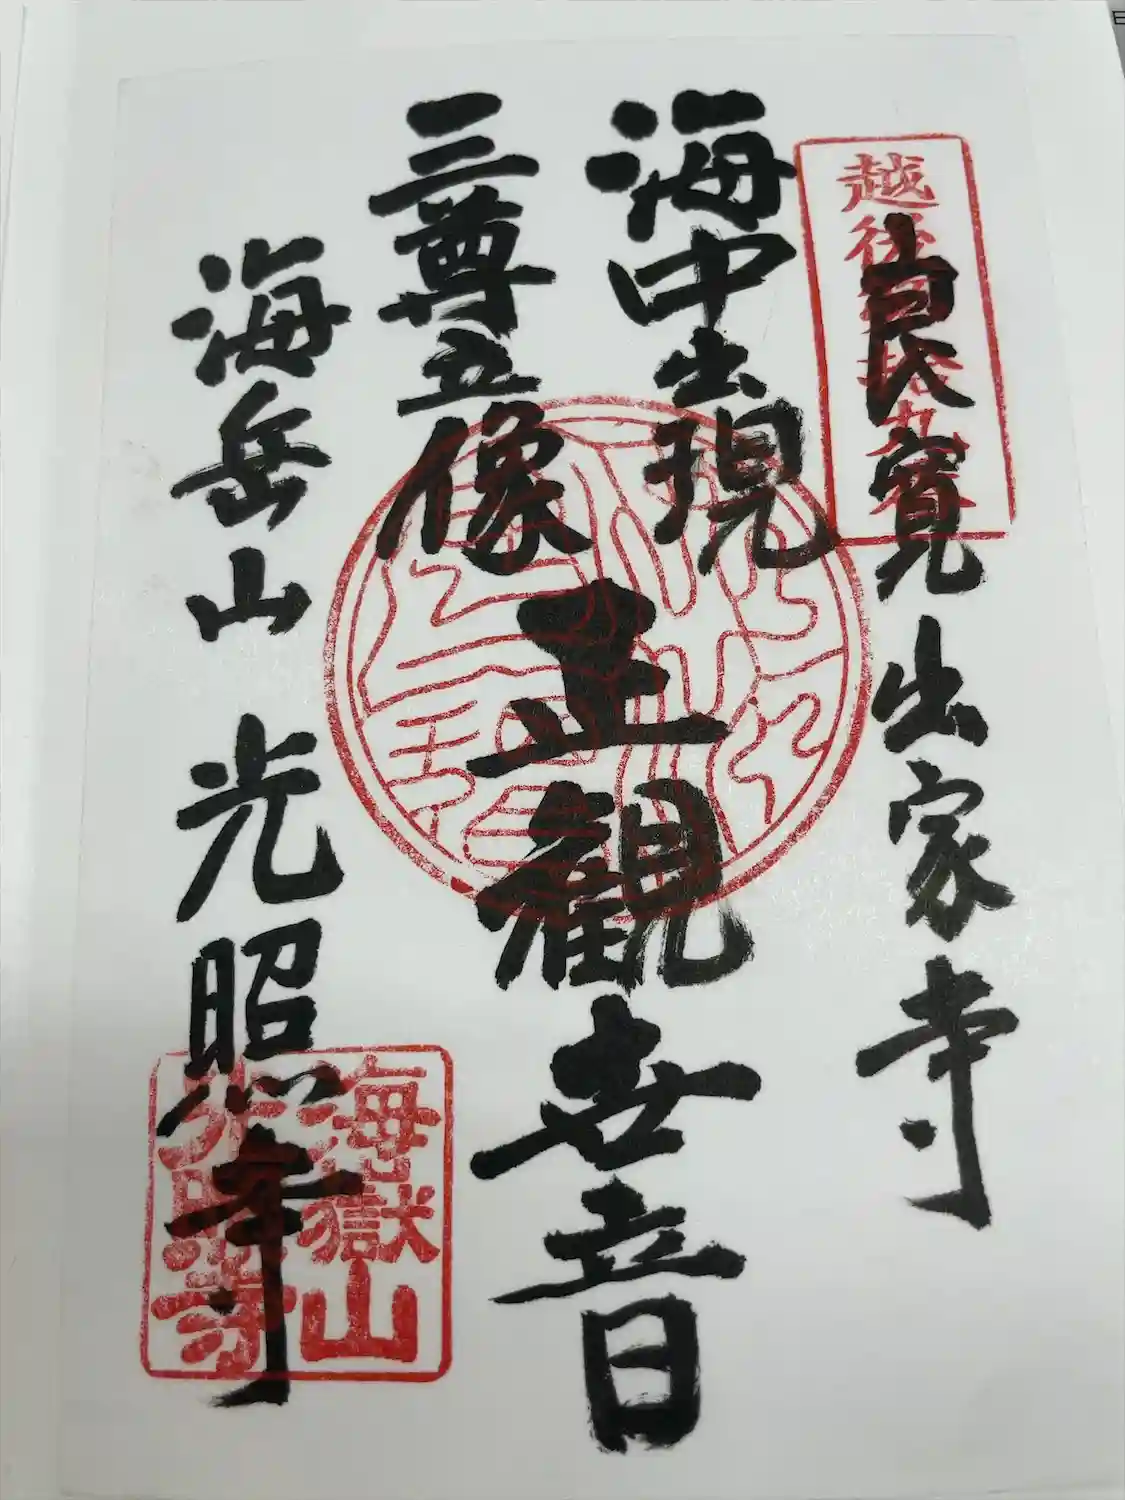 良寛出家寺
海中出現
三尊立像
正観世音
海岳山 光照寺
越後
海嶽山
光照寺